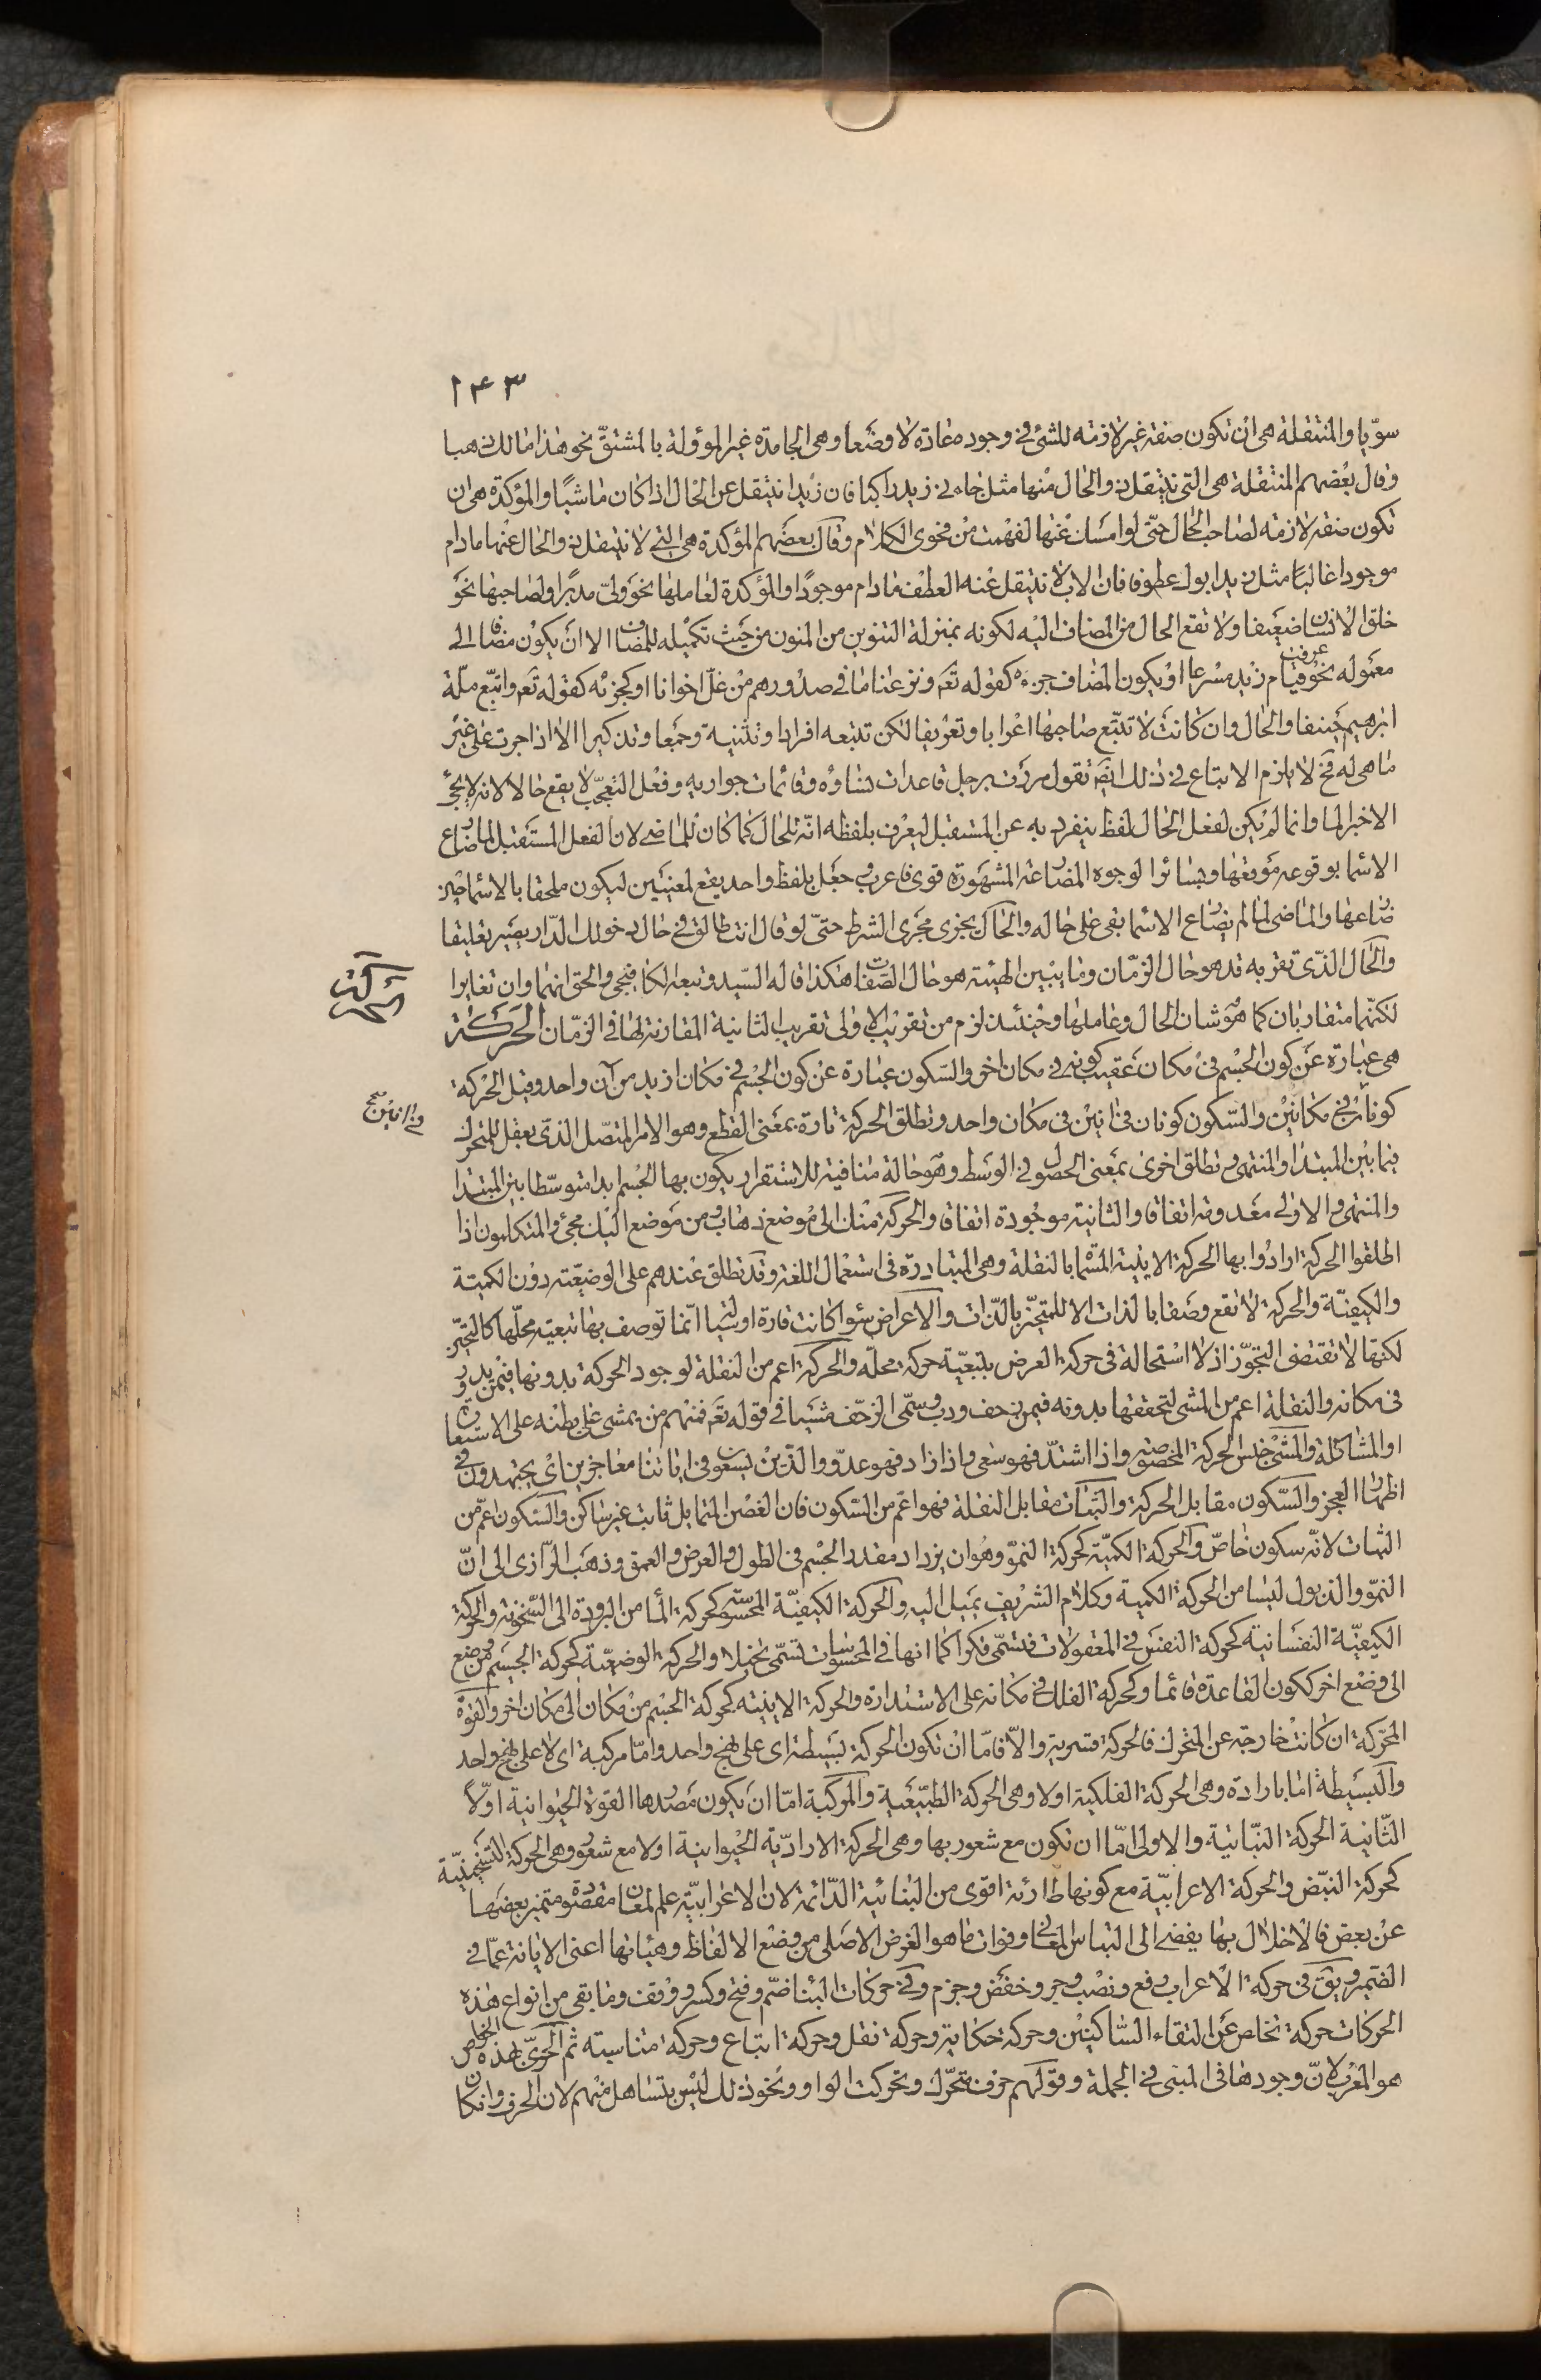 ١٤٣
سويا والمنتقلة هى ان تكون صفة غير لازمة للشئ فى وجوده عادة لا وضعا وهى الجامدة غير المؤولة بالمشتق نحو هذا مالك ذهبا
وقال بعضهم المنتقلة هى التى ينتقل ذو الحال منها مثل جاءنى زيد راكبا فان زيدا ينتقل عن الحال اذا كان ماشيا والمؤكدة هى ان
تكون صفة لازمة لصاحب الحال حتى لو امسك عنها لفهمت من فحوى الكلام وقال بعضهم المؤكدة هى التى لا ينتقل ذو الحال عنها مادام
موجودا غالبا مثل زيد ابوك عطوفا فان الاب لا ينتقل عنه العطف مادام موجودا والمؤكدة لعاملها نحو ولى مدبرا ولصاحبها نحو
خلق الانسان ضعيفا ولا تقع الحال من المضاف اليه لكونه بمنزلة التنوين من المنون من حيث تكميله للمضاف الا ان يكون مضافا الى
معموله نحو عرفت قيام زيد مسرعا او يكون المضاف جزءه كقوله تع ونزعنا ما فى صدورهم من غل اخوانا او كجزئه كقوله تع واتبع ملة
ابرهيم حنيفا والحال وان كانت لا تتبع صاحبها اعرابا وتعريفا لكن تتبعه افرادا وتثنية وجمعا وتذكيرا الا اذا جرت على غير
ما هى له فح لا يلزم الاتباع فى ذلك ايض تقول مررت برجل قاعدات نساؤه وقائمات جواريه وفعل التعجب لا يقع حالا لانه لا يجئ
الا خبرا لما وانما لم يكن لفعل الحال لفظ ينفرد به عن المستقبل ليعرف بلفظه انه للحال كما كان للماضى لان الفعل المستقبل لما ضارع
الاسما بوقوعه موقعها وبسائر الوجوه المضارعة المشهورة قوى فاعرب وجعل بلفظ واحد يقع لمعنيين ليكون ملحقا بالاسما حين
ضارعها والماضى لما لم يضارع الاسما بقى على حاله والحال يجرى مجرى الشرط حتى لو قال انت طالق فى حال دخولك الدار يصير تعليقا
والحال الذى تقربه قد هو حال الزمان وما يبين الهيئة هو حال الصفات هكذا قاله السيد وتبعه الكافيجى والحق انهما وان تغايرا
لكنهما متقاربان كما هو شان الحال وعاملها وحينئذ لزم من تقريب الاولى تقريب الثانية المقارنة لها فى الزمان الحركة
الحركة
هى عبارة عن كون الجسم فى مكان عقيب كونه فى مكان اخر والسكون عبارة عن كون الجسم فى مكان ازيد من آن واحد وقيل الحركة
كونان فى مكانين والسكون كونان فى انين فى مكان واحد وتطلق الحركة تارة بمعنى القطع وهو الامر المتصل الذى يعقل للمتحرك
فى انين صح
فيما بين المبتدا والمنتهى وتطلق اخرى بمعنى الحصول فى الوسط وهو حالة منافية للاستقرار يكون بها الجسم ابدا متوسطا بين المبتدا
والمنتهى والاولى معدومة اتفاقا والثانية موجودة اتفاقا والحركة منك الى موضع ذهاب ومن موضع اليك مجئ والمتكلمون اذا
اطلقوا الحركة ارادوا بها الحركة الاينية المسما بالنقلة وهى المتبادرة فى استعمال اللغة وقد تطلق عندهم على الوضعية دون الكمية
والكيفية والحركة لا تقع وصفا بالذات الا للمتحيز بالذات والاعراض سوا كانت قارة او سيالة انما توصف بها تبعية محلها كالتحيز
لكنها لا تقتضى التجوز اذ لا استحالة فى حركة العرض بتبعية حركة محله والحركة اعم من النقلة لوجود الحركة بدونها فيمن يدور
فى مكانه والنقلة اعم من المشى لتحققها بدونه فيمن زحف ودب وسمى الزحف مشيا فى قوله تع فمنهم من يمشى على بطنه على الاستعارة
او المشاكلة والمشى جنس الحركة المخصوصة واذا اشتد فهو سعى واذا زاد فهو عدو والذين يسعون فى اياتنا معاجزين اى يجتهدون فى
اظهار العجز والسكون مقابل الحركة والثبات مقابل النقلة فهو اعم من السكون فان الغصن المتمايل ثابت غير ساكن والسكون اعم من
الثبات لانه سكون خاص والحركة الكمية كحركة النمو وهو ان يزداد مقدار الجسم فى الطول والعرض والعمق وذهب الرازى الى ان
النمو والذبول ليسا من الحركة الكمية وكلام الشريف يميل اليه والحركة الكيفية المحسوسة كحركة الما من البرودة الى السخونة والحركة
الكيفية النفسانية كحركة النفس فى المعقولات فتسمى فكرا كما انها فى المحسوسات تسمى تخيلا والحركة الوضعية كحركة الجسم من وضع
الى وضع اخر ككون القاعدة قائما وكحركة الفلك فى مكانه على الاستدارة والحركة الاينية كحركة الجسم من مكان الى مكان اخر والقوة
المحركة ان كانت خارجة عن المتحرك فالحركة قسرية والا فاما ان تكون الحركة بسيطة اى على نهج واحد واما مركبة اى لا على نهج واحد
والبسيطة اما بارادة وهى الحركة الفلكية اولا وهى الحركة الطبيعية والمركبة اما ان يكون مصدرها القوة الحيوانية اولا
الثانية الحركة النباتية والاولى اما ان تكون مع شعور بها وهى الحركة الارادية الحيوانية اولا مع شعور وهى الحركة التسخيرية
كحركة النبض والحركة الاعرابية مع كونها طارئة اقوى من البنائية الدائمة لان الاعرابية علم لمعان مقصودة متميز بعضها
عن بعض فالاخلال بها يفضى الى التباس المعانى وفوات ما هو الغرض الاصلى من وضع الالفاظ وهيئاتها اعنى الابانة عما فى
الضمير ويق فى حركة الاعراب رفع ونصب وجر وخفض وجزم وفى حركات البنا ضم وفتح وكسر ووقف وما بقى من انواع هذه
الحركات حركة تخلص عن التقاء الساكنين وحركة حكاية وحركة نقل وحركة اتباع وحركة مناسبة ثم الحرى بهذه الخواص
هو المعرب لان وجودها فى المبنى فى الجملة وقولهم حرف متحرك وتحركت الواو ونحو ذلك ليس بتساهل منهم لان الحرف وان كان